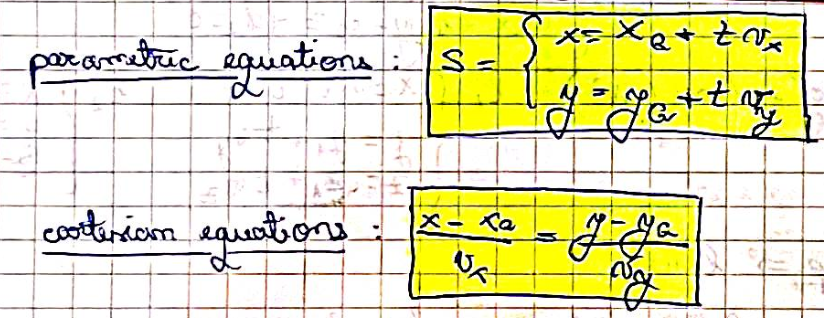 parametric equations : S = { x = x_Q + t v_x
y = y_Q + t v_y
cartesian equations : (x - x_Q)/v_x = (y - y_Q)/v_y